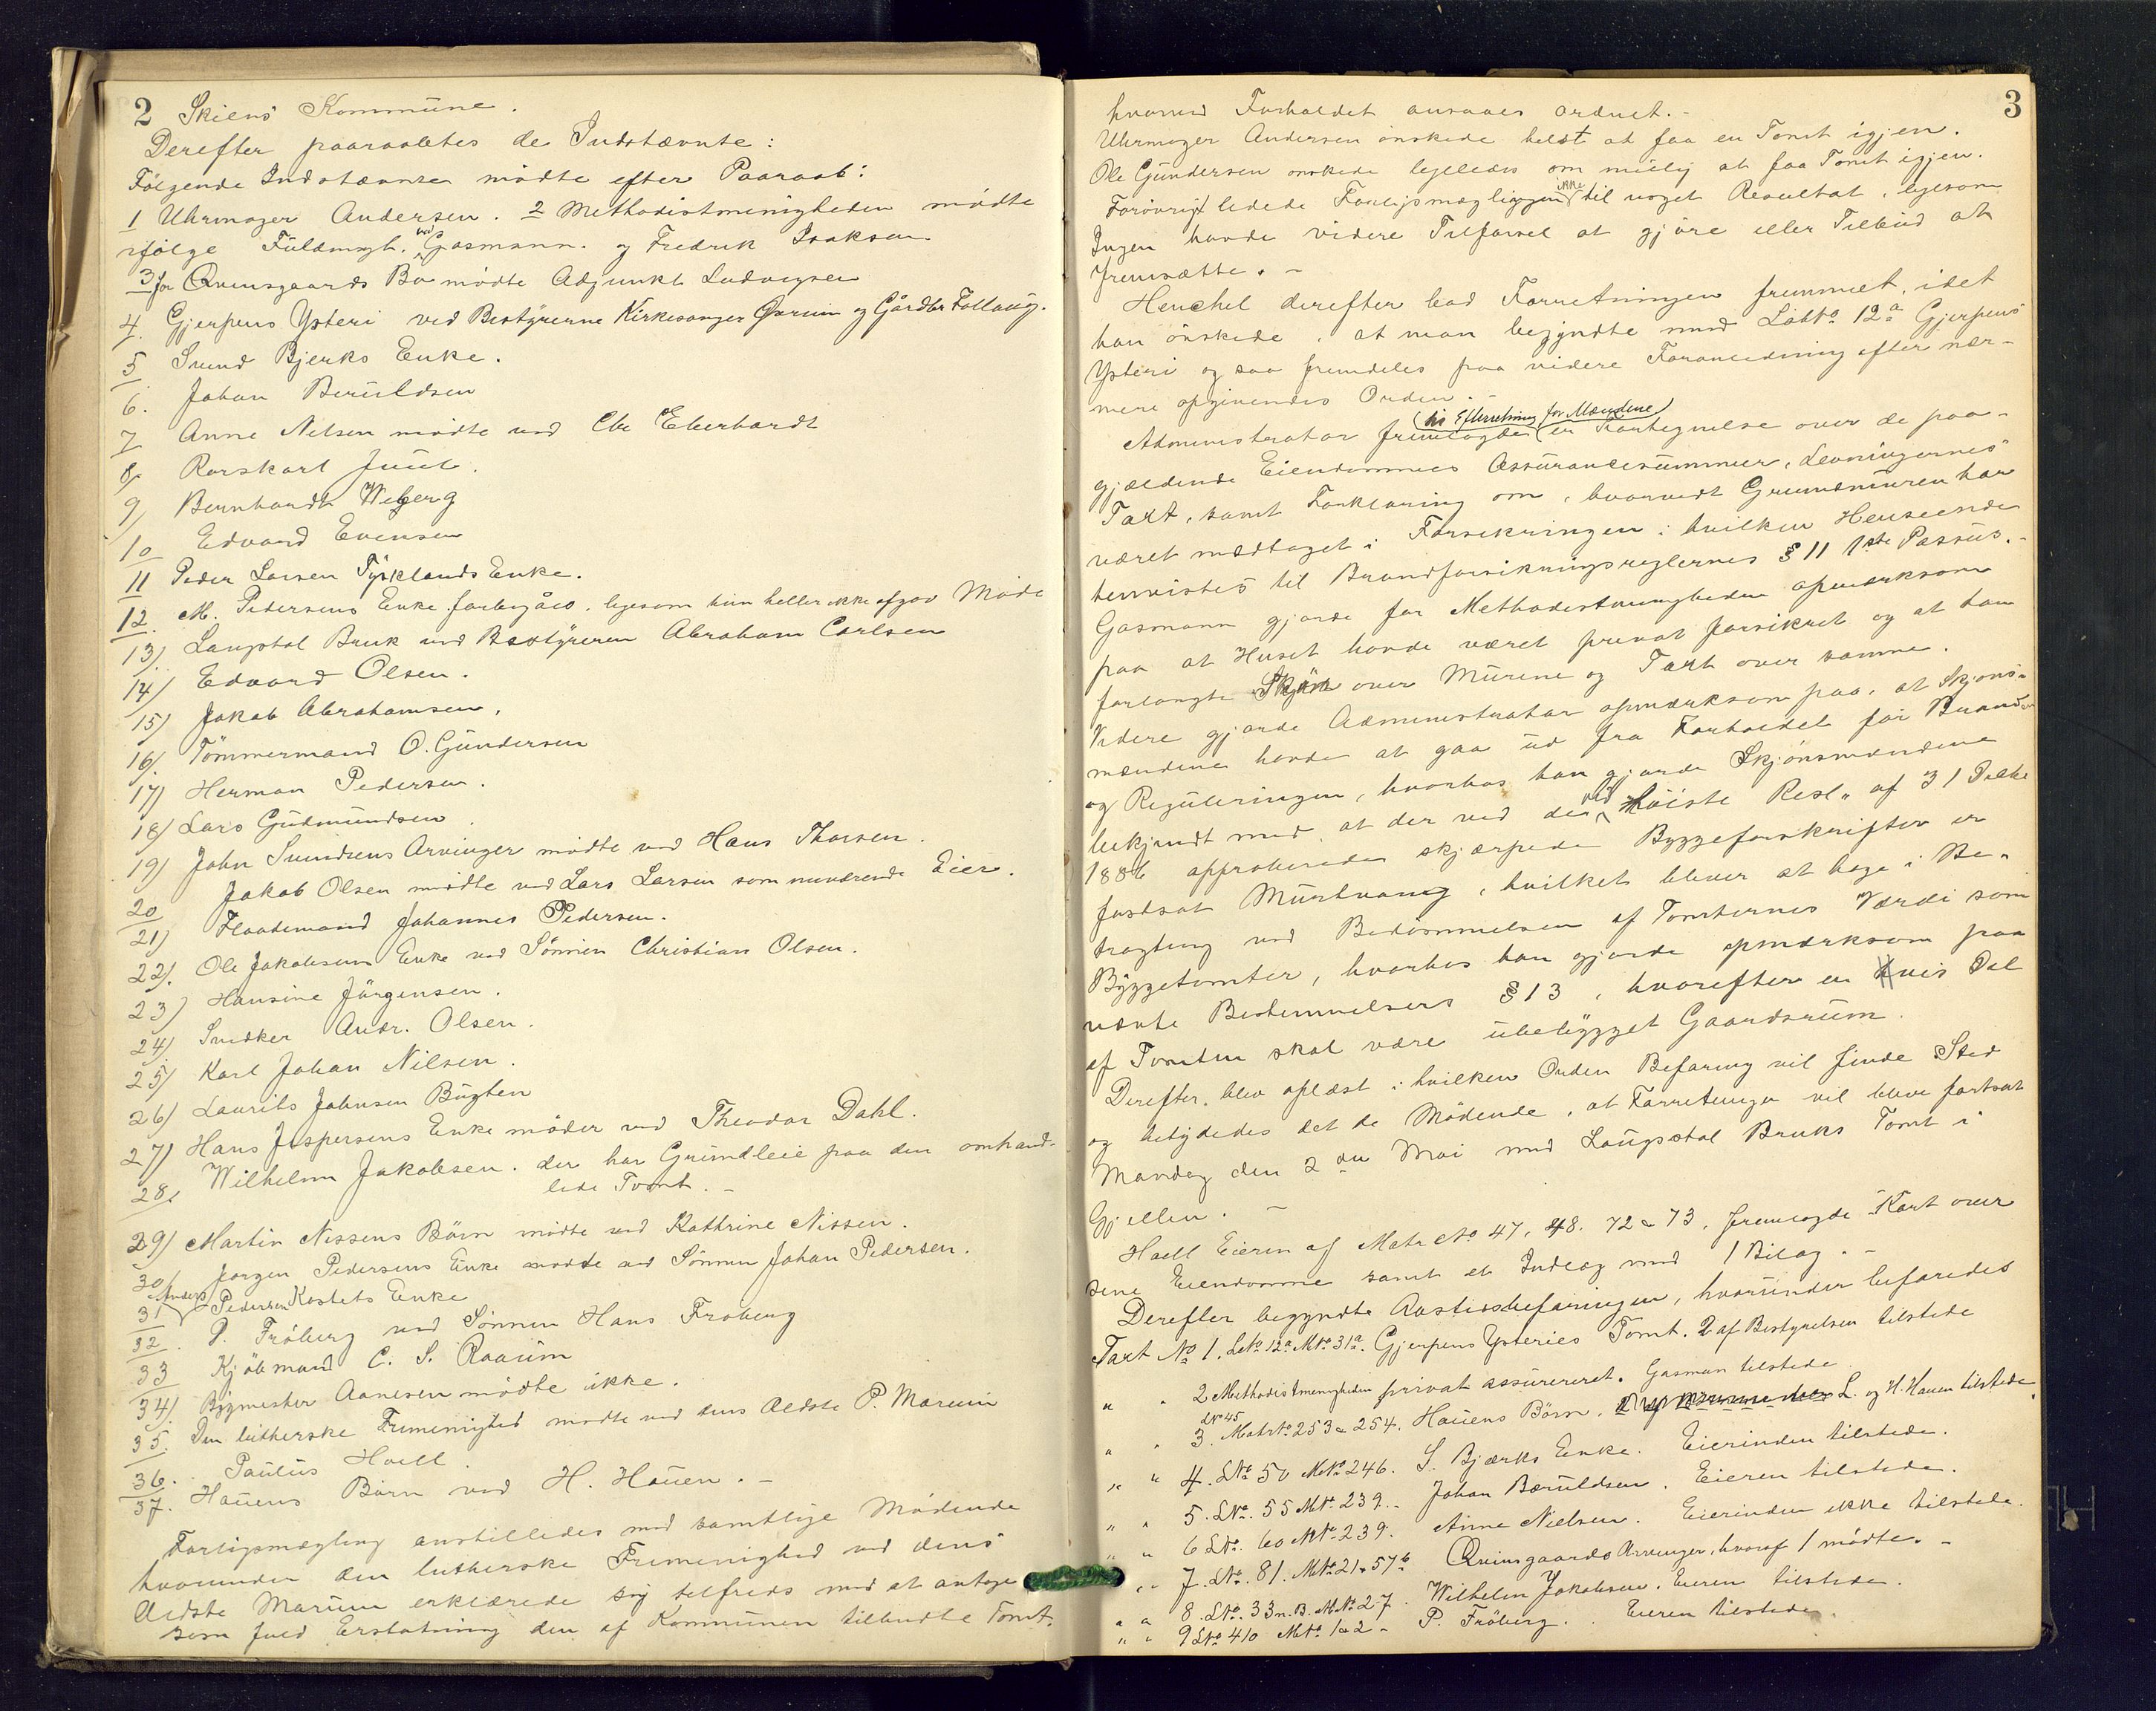 2 Skiens Kommune.
Derefter paaraabtes de Indstævnte:
Følgende Indstævnte mødte efter Paaraab:
1 Uhrmager Andersen. 2 Methodistmenigheden mødte
ifølge Fuldmagt. ved Gasmann. og Fredrik Isaksen
3 for Qvinsgaards Bo mødte Adjunkt Ludvigsen
4. Gjerpens Ysteri ved Bestyrerne Kirkesanger Ørnim og Gårdbr Follaug.
5 Svend Bjerks Enke.
6. Johan Beruldsen
7 Anne Nilsen mødte ved Chr Eberhardt
8) Rorskarl Juul.
9) Bernhardt Weberg
10 Edvard Evensen
11 Peder Larsen Tyrklands Enke.
12. M. Pedersens Enke forbigåes. ligesom hun heller ikke afgav Møde
13) Langstøl Bruk ved Bestyreren Abraham Carlsen
14) Edvard Olsen.
15) Jakob Abrahamsen.
16) Tømmermand O. Gundersen
17) Herman Pedersen.
18) Lars Gudmundsen
19) John Svendsens Arvinger mødte ved Hans Thorsen.
20 Jakob Olsen mødte ved Lars Larsen som nuværende Eier.
21) Flaademand Johannes Pedersen.
22). Ole Jakobsens Enke ved Sønnen Christian Olsen.
23) Hansine Jørgensen.
24) Snedker Andr. Olsen.
25) Karl Johan Nilsen.
26) Laurits Johnsen Bugten
27) Hans Jespersens Enke møder ved Theodor Dahl.
28. Wilhelm Jakobsen. der har Grundleie paa den omhand-
lede Tomt. -
29) Martin Nissens Børn mødte ved Kathrine Nissen.
30) Jørgen Pedersens Enke mødte ved Sønnen Johan Pedersen.
31 Anders Pedersen Kastets Enke
32. P. Frøberg ved Sønnen Hans Frøberg
33 Kjøbmand C. S. Raaum
34) Bygmester Aanesen mødte ikke.
35. Den lutherske Frimenighed mødte ved dens Ældste P. Marum
36. Paulus Hoell.
37. Hauens Børn ved H. Hauen. -
Forligsmægling anstilledes med samtlige Mødende
hvorunder den lutherske Frimenighed ved dens
Ældste Marum erklærede sig tilfreds med at antage
som fuld Erstatning den af Kommunen tilbudte Tomt,
3
hvorved Forholdet ansaaes ordnet. -
Uhrmager Andersen ønskede helst at faa en Tomt igjen.
Ole Gundersen ønskede ligeledes om mulig at faa Tomt igjen.
Forøvrigt ledede Forligsmæglingen ikke til noget Resultat, ligesom
Ingen havde videre Tilførsel at gjøre eller Tilbud at
fremsætte. -
Henchel derefter bad Forretningen fremmet, idet
han ønskede, at man begyndte med Løbno 12a Gjerpens
Ysteri og saa fremdeles paa videre Foranledning efter nær-
mere opgivendes Orden. -
Administrator fremlagde (til Efterretning for Mændene) en Fortegnelse over de paa-
gjældende Eiendommes Assurancesummer, Levningernes
Taxt, samt Forklaring om, hvorvidt Grundmuren har
været medtaget i Forsikringen i hvilken Henseende
henvistes til Brandforsikringsreglernes § 11 1ste Passus. -
Gasmann gjorde for Methodistmenigheden opmærksom
paa at Huset havde været privat forsikret og at han
forlangte Skjøn over Murene og Taxt over samme.
Videre gjorde Administrator opmærksom paa, at Skjøns-
mændene havde at gaa ud fra Forholdet før Branden
og Reguleringen, hvorhos han gjorde Skjønsmændene
bekjendt med at der ved den ved høieste Resl. af 31 Decbr
1886 approberede skjærpede Byggeforskrifter er
fastsat Murtvang, hvilket bliver at tage i Be-
tragtning ved Bedømmelsen af Tomternes Værdi som
Byggetomter, hvorhos han gjorde opmærksom paa
nævnte Bestemmelsers § 13, hvorefter en vis Del
af Tomten skal være ubebygget Gaardsrum.
Derefter blev oplæst i hvilken Orden Befaring vil finde Sted
og betydedes det de Mødende, at Forretningen vil blive fortsat
Mandag den 2den Mai med Langstøl Bruks Tomt i
Gjellen. -
Hoell Eieren af Matr No 47, 48. 72 & 73, fremlagde Kart over
sine Eiendomme samt et Indlæg med 1 Bilag. -
Derefter begyndte Aastedsbefaringen, hvorunder befaredes
Taxt No 1. LNo 12a MNo 31a. Gjerpens Ysteries Tomt. 2 af Bestyrelsen tilstede
" " 2 Methodistmenigheden privat assureret. Gasman tilstede
" " 3. LNo 45 MatrNo 253 & 254. Hauens Børn. L. og H. Hauen tilstede.
" " 4. LNo 50 MNo 246. S. Bjærks Enke. Eierinden tilstede.
" " 5. LNo. 55 MNo. 239. - Johan Bæruldsen. Eieren tilstede.
" " 6 LNo. 60 MNo 239. Anne Nielsen. Eierinden ikke tilstede.
" " 7. LNo. 81. MNo 21 & 57b Qvinsgaards Arvinger, hvoraf 1 mødte. -
" " 8. LNo. 33 n. B. MNo 27. Wilhelm Jakobsen. Eieren tilstede.
" " 9 LNo 410 MNo 1 & 2 - P. Frøberg. Eieren tilstede.